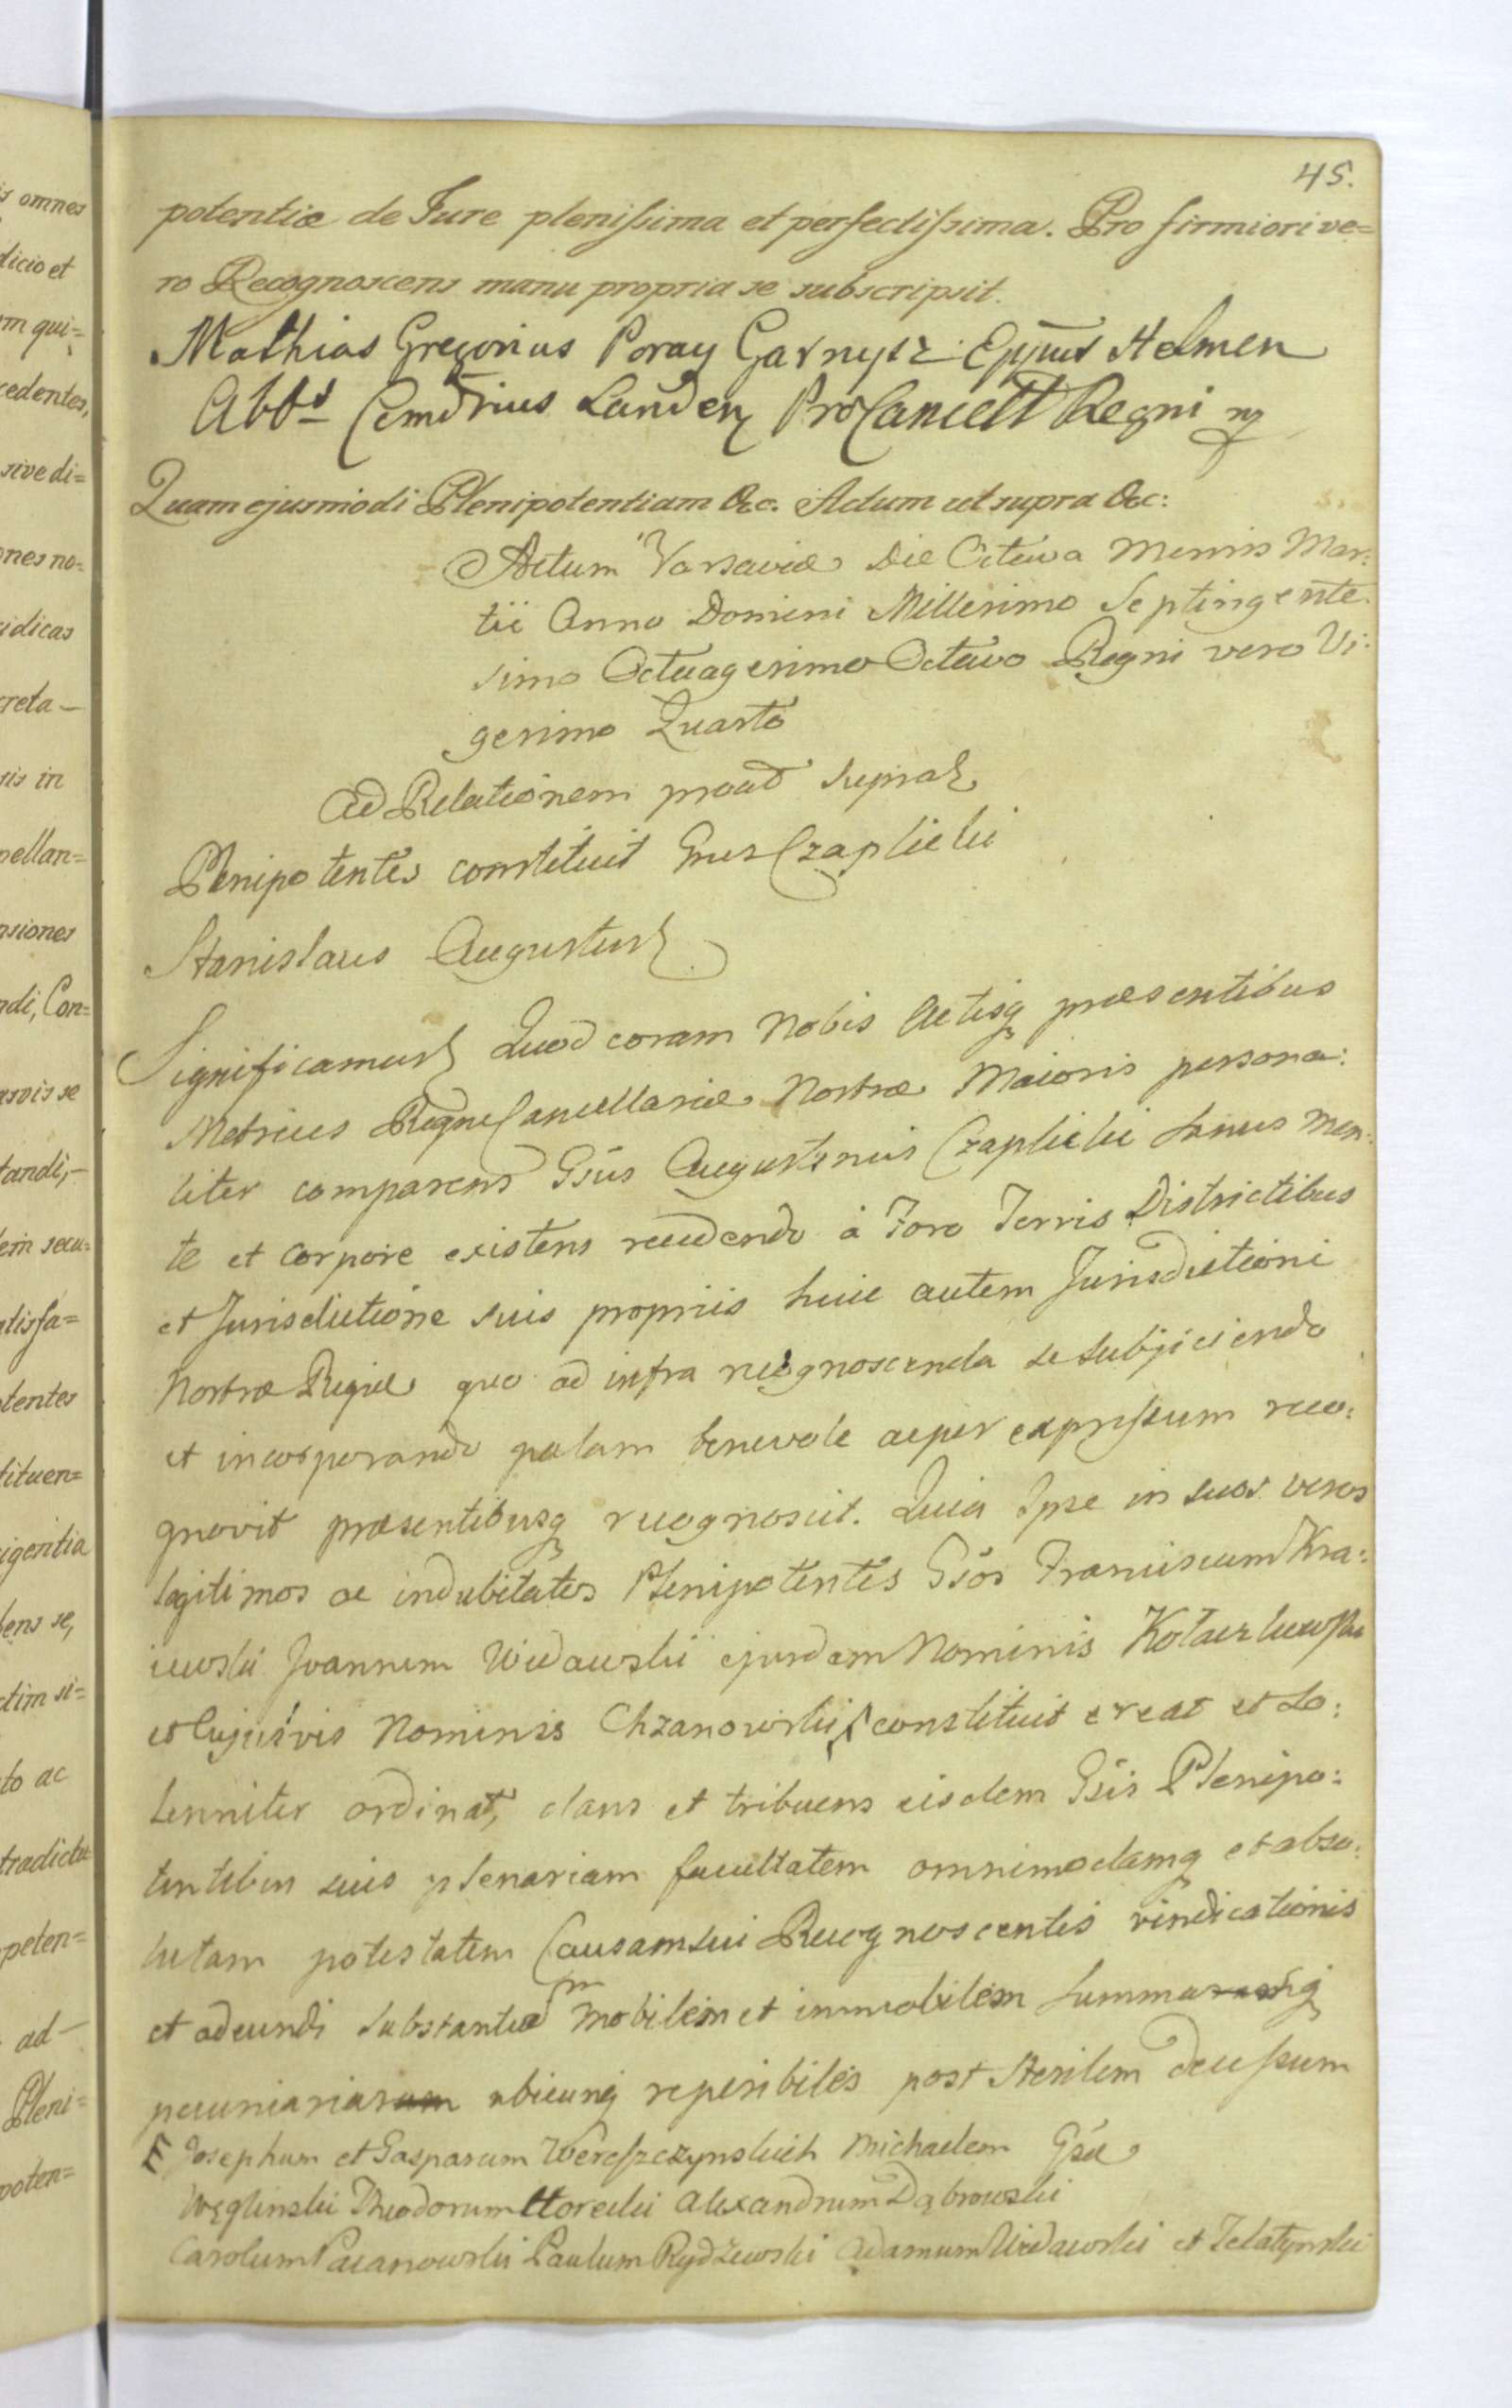 45.
potentiæ de Jure plenissima et perfectissima. Pro firmiori ve=
ro Recognoscens manu propria se subscripsit.
Mathias Gregorius Poray Garnysz Eppus Helmen
Abbs Cemdrius Landen ProCancell Regni
Quam ejusmodi Plenipotentiam &c. Actum ut supra &c:
Actum Varsaviæ Die Octava Mensis Mar:
tii Anno Domini Millesimo Septingente
simo Octuagesimo Octavo Regni vero Vi:
gesimo Quarto
Ad Relationem prout supra
Plenipotentes constituit Gnus Czaplicki
Stanislaus Augustus
Significamus Quod coram Nobis Actisq præsentibus
Metrices Regni Cancellariæ Nostræ Maioris persona:
liter comparens Gsus Augustinus Czaplicki sanus men:
te et corpore existens recedendo à Foro Terris Districtibus
et Jurisdictione suis propriis huic autem Jurisdictioni
Nostræ Regiæ quo ad infra recognoscenda se subjiciendo
et incorporando palam benevole ac per expressum reco:
gnovit præsentibusq recognoscit. Quia Ipse in suos veros
legitimos ac indubitatos Plenipotentes Gsos Franciscum Kra:
iewski Joannem Widawski ejusdem Nominis
et Cujusvis Nominis Chzanowski constituit creat et So:
lenniter ordinat, dans et tribuens eisdem Gsis Plenipo:
tentibus suis plenariam facultatem omnimodamq et abso:
lutam potestatem Causam sui Recognoscentis vindicationis
et adeundi substantiam mobilem et immobilem Summasq
pecuniarias ubicunq reperibiles post sterilem decessum
Josephum et Gasparum Wereszczynskich Michaelem Gsæ
Węglinski Theodorum Horecki Alexandrum Dąbrowski
Carolum Pacanowski Paulum Rydzewski Adamum Widawski et Zelatynski
omnes
dicio et
m qui=
cedentes,
sive di=
nes no=
idicas
creta —
sis in
pellan=
nsiones
ndi, Con=
arvis se
tandi,—
em secu=
tisfa=
tentes
tituen=
igentia
bens se,
ctim si=
to ac
tradictu
peten=
ad—
Pleni=
poten=